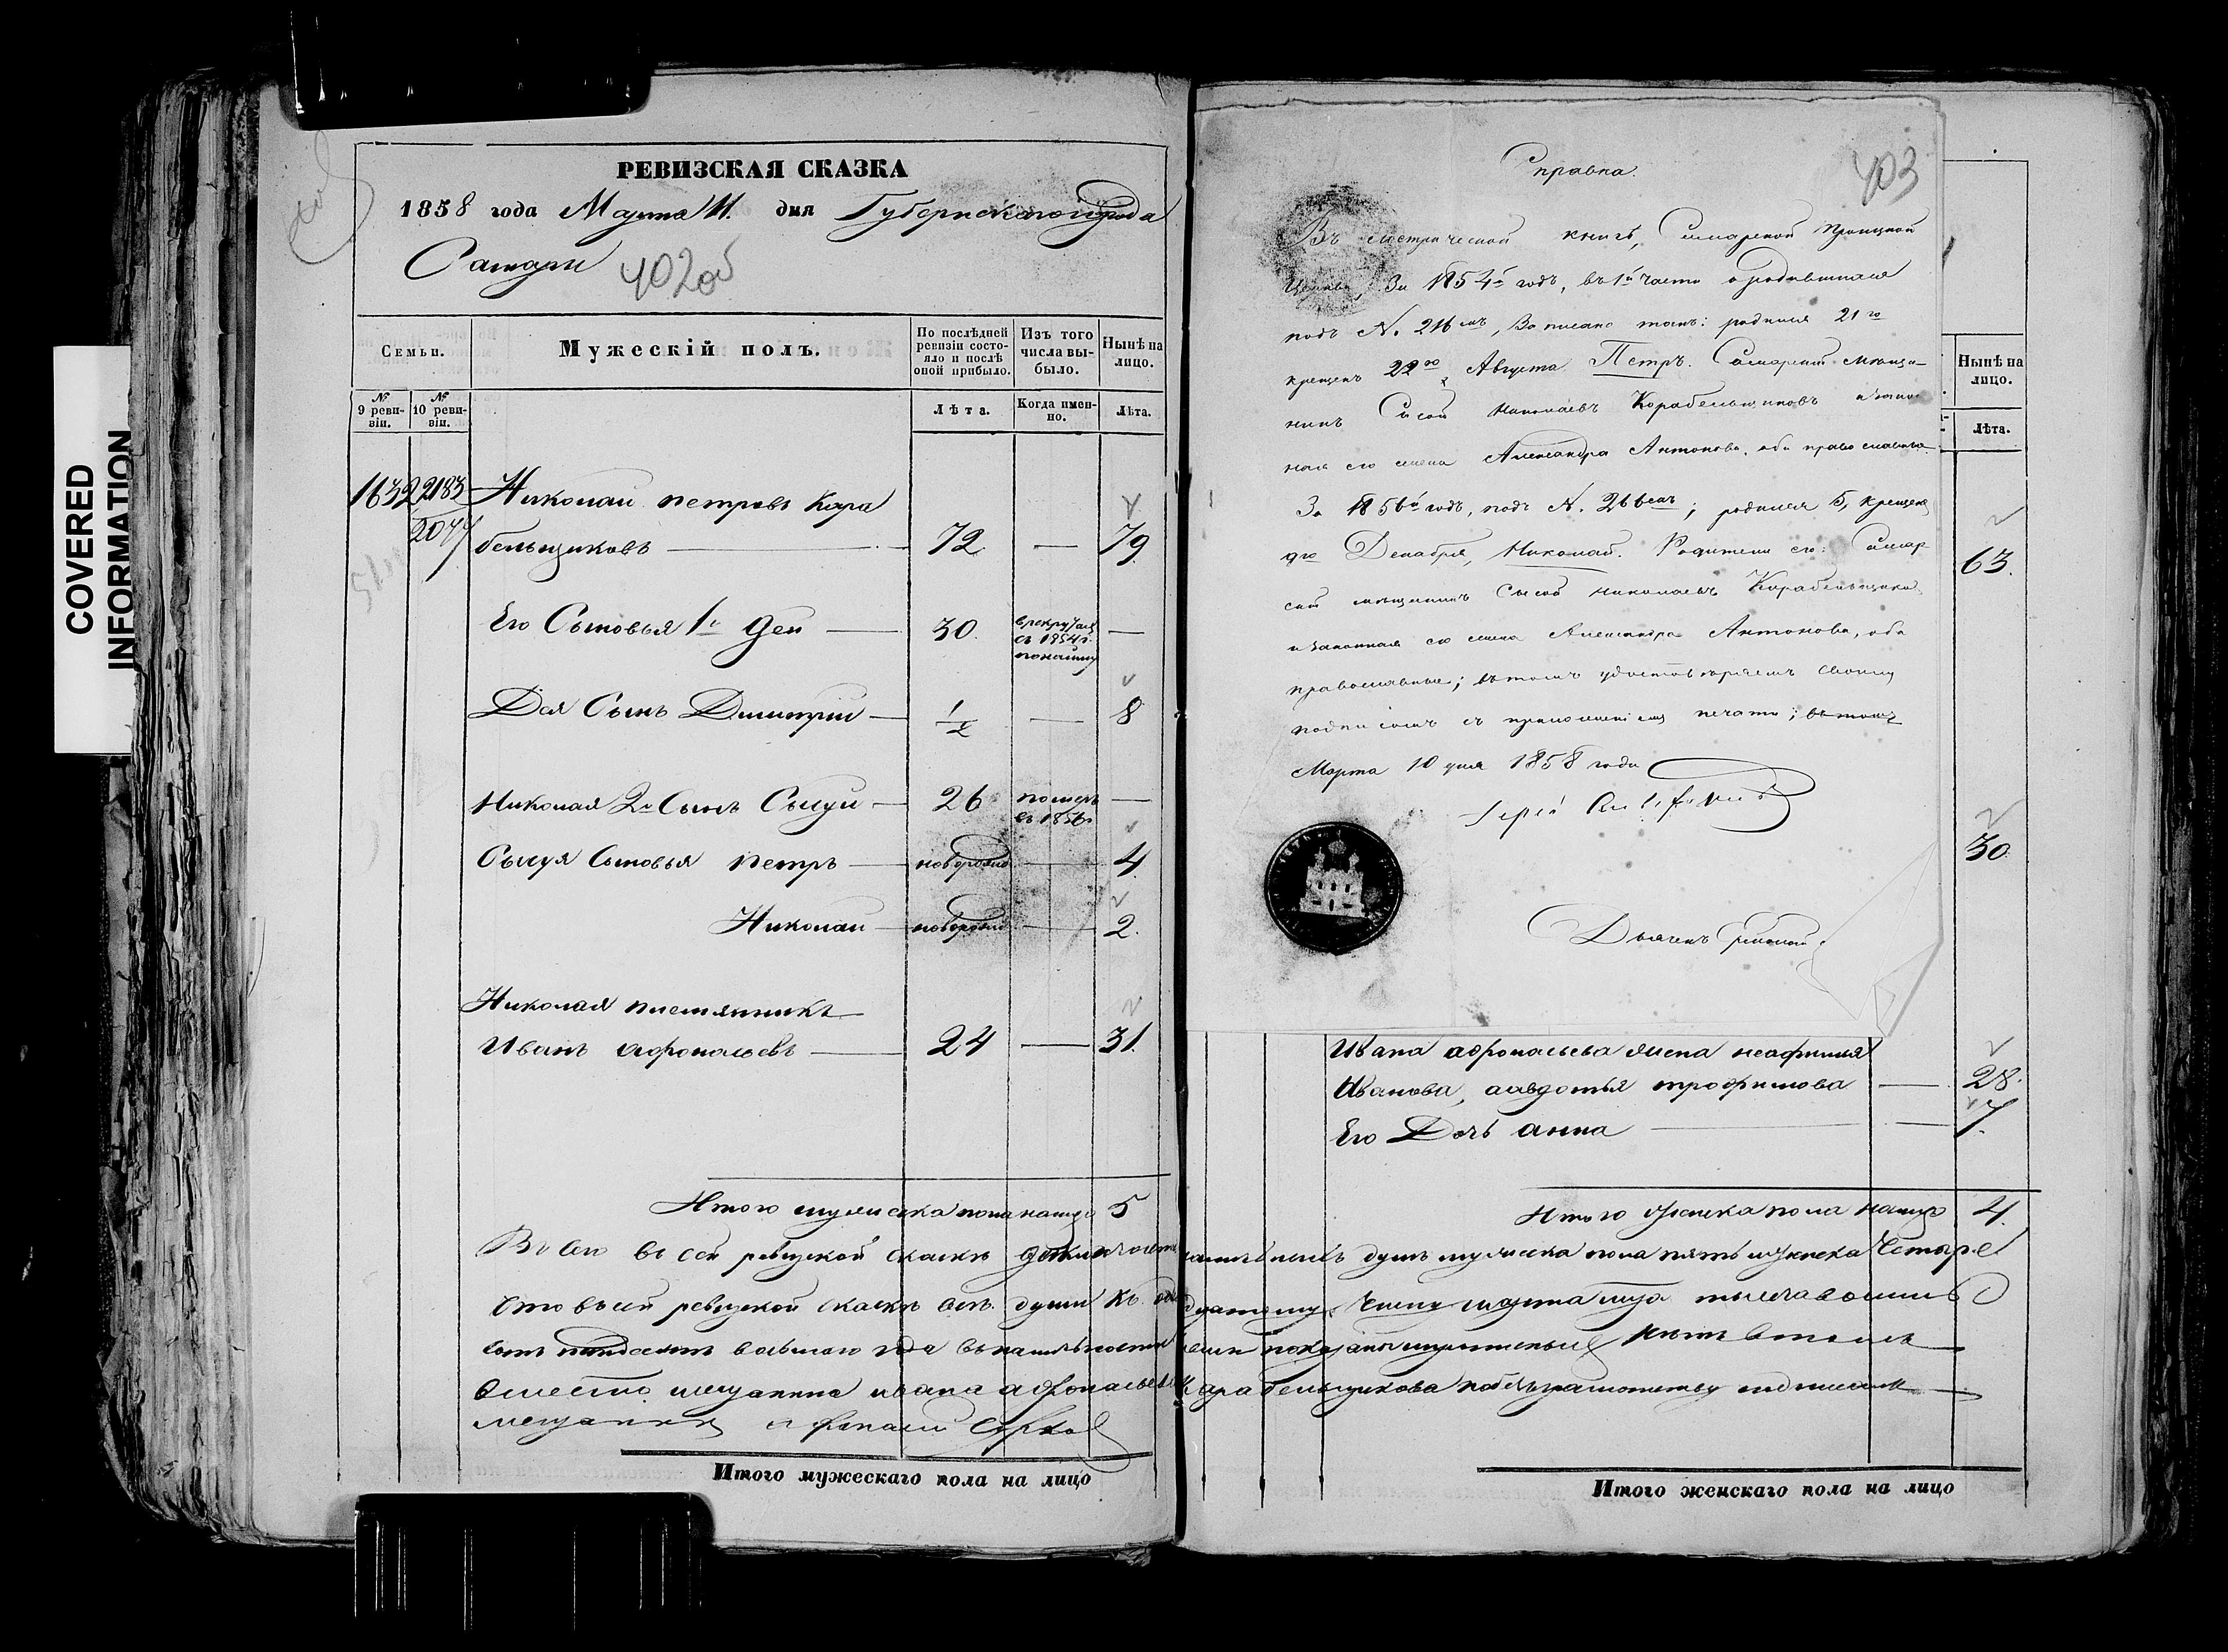 COVERED
INFORMATION
РЕВИЗСКАЯ СКАЗКА
1858 года Марта 11. дня Губернскаго города
Самары 402об
Семьи.
Мужескій полъ.
По послѣдней ревизіи состояло и послѣ оной прибыло.
Изъ того числа выбыло.
Нынѣ на лицо.
№ 9 ревизіи.
№ 10 ревизіи.
Лѣта.
Когда именно.
Лѣта.
1632 2183 Николай петровъ Кара
2077 бельщиковъ 72 — 79
Его Сыновья 1й 30 врекрутахъ съ 1854г. —
Сынъ Димитрій — 1/2 — 8
Николая 2й Сынъ Сысуй — 26 померъ въ 1856г —
Сысуя Сыновья петръ — новорожд — 4
Николай — новорожд — 2.
Николая племянникъ
Иванъ афонасьевъ — 24 — 31.
Итого мужеска пола налицо 5
403
Справка.
Въ метрической книгѣ, Самарской Троицкой
Церкви, За 1854й годъ, въ 1й части о родившихся
подъ N. 216мъ, Записано такъ: родился 21го
крещенъ 22го Августа Петръ. Самарскій мѣща-
нинъ Сысой Николаевъ Корабельщиковъ и закон
ная его жена Александра Антонова, оба православные.
За 1856й годъ, подъ N. 266мъ; родился 5, крещенъ
9го Декабря, Николай. Родители его: Самар
скій мѣщанинъ Сысой Николаевъ Корабельщиковъ
и законная его жена Александра Антонова, оба
православные; въ томъ удостовѣряемъ своимъ
подписомъ съ приложеніемъ печати; въ томъ
Марта 10 дня 1858 года
Іерей
Дьячекъ
Нынѣ на лицо.
Лѣта.
63.
30
Ивана афонасьева жена
Иванова, авдотья трофимова — 28.
Его Дочь анна — 7.
Итого женска пола налицо 4.
въ сей ревизской сказкѣ душъ мужеска пола пять женска Четыре
Что въ сей ревизской сказкѣ всѣ души къ Числу марта мца тысяча восемь
сотъ пятьдесятъ восьмаго года въ наличности показаны
вместо мещанина ивана афонасьева Карабельщикова
мещанинъ афонасій
Итого мужескаго пола на лицо
Итого женскаго пола на лицо